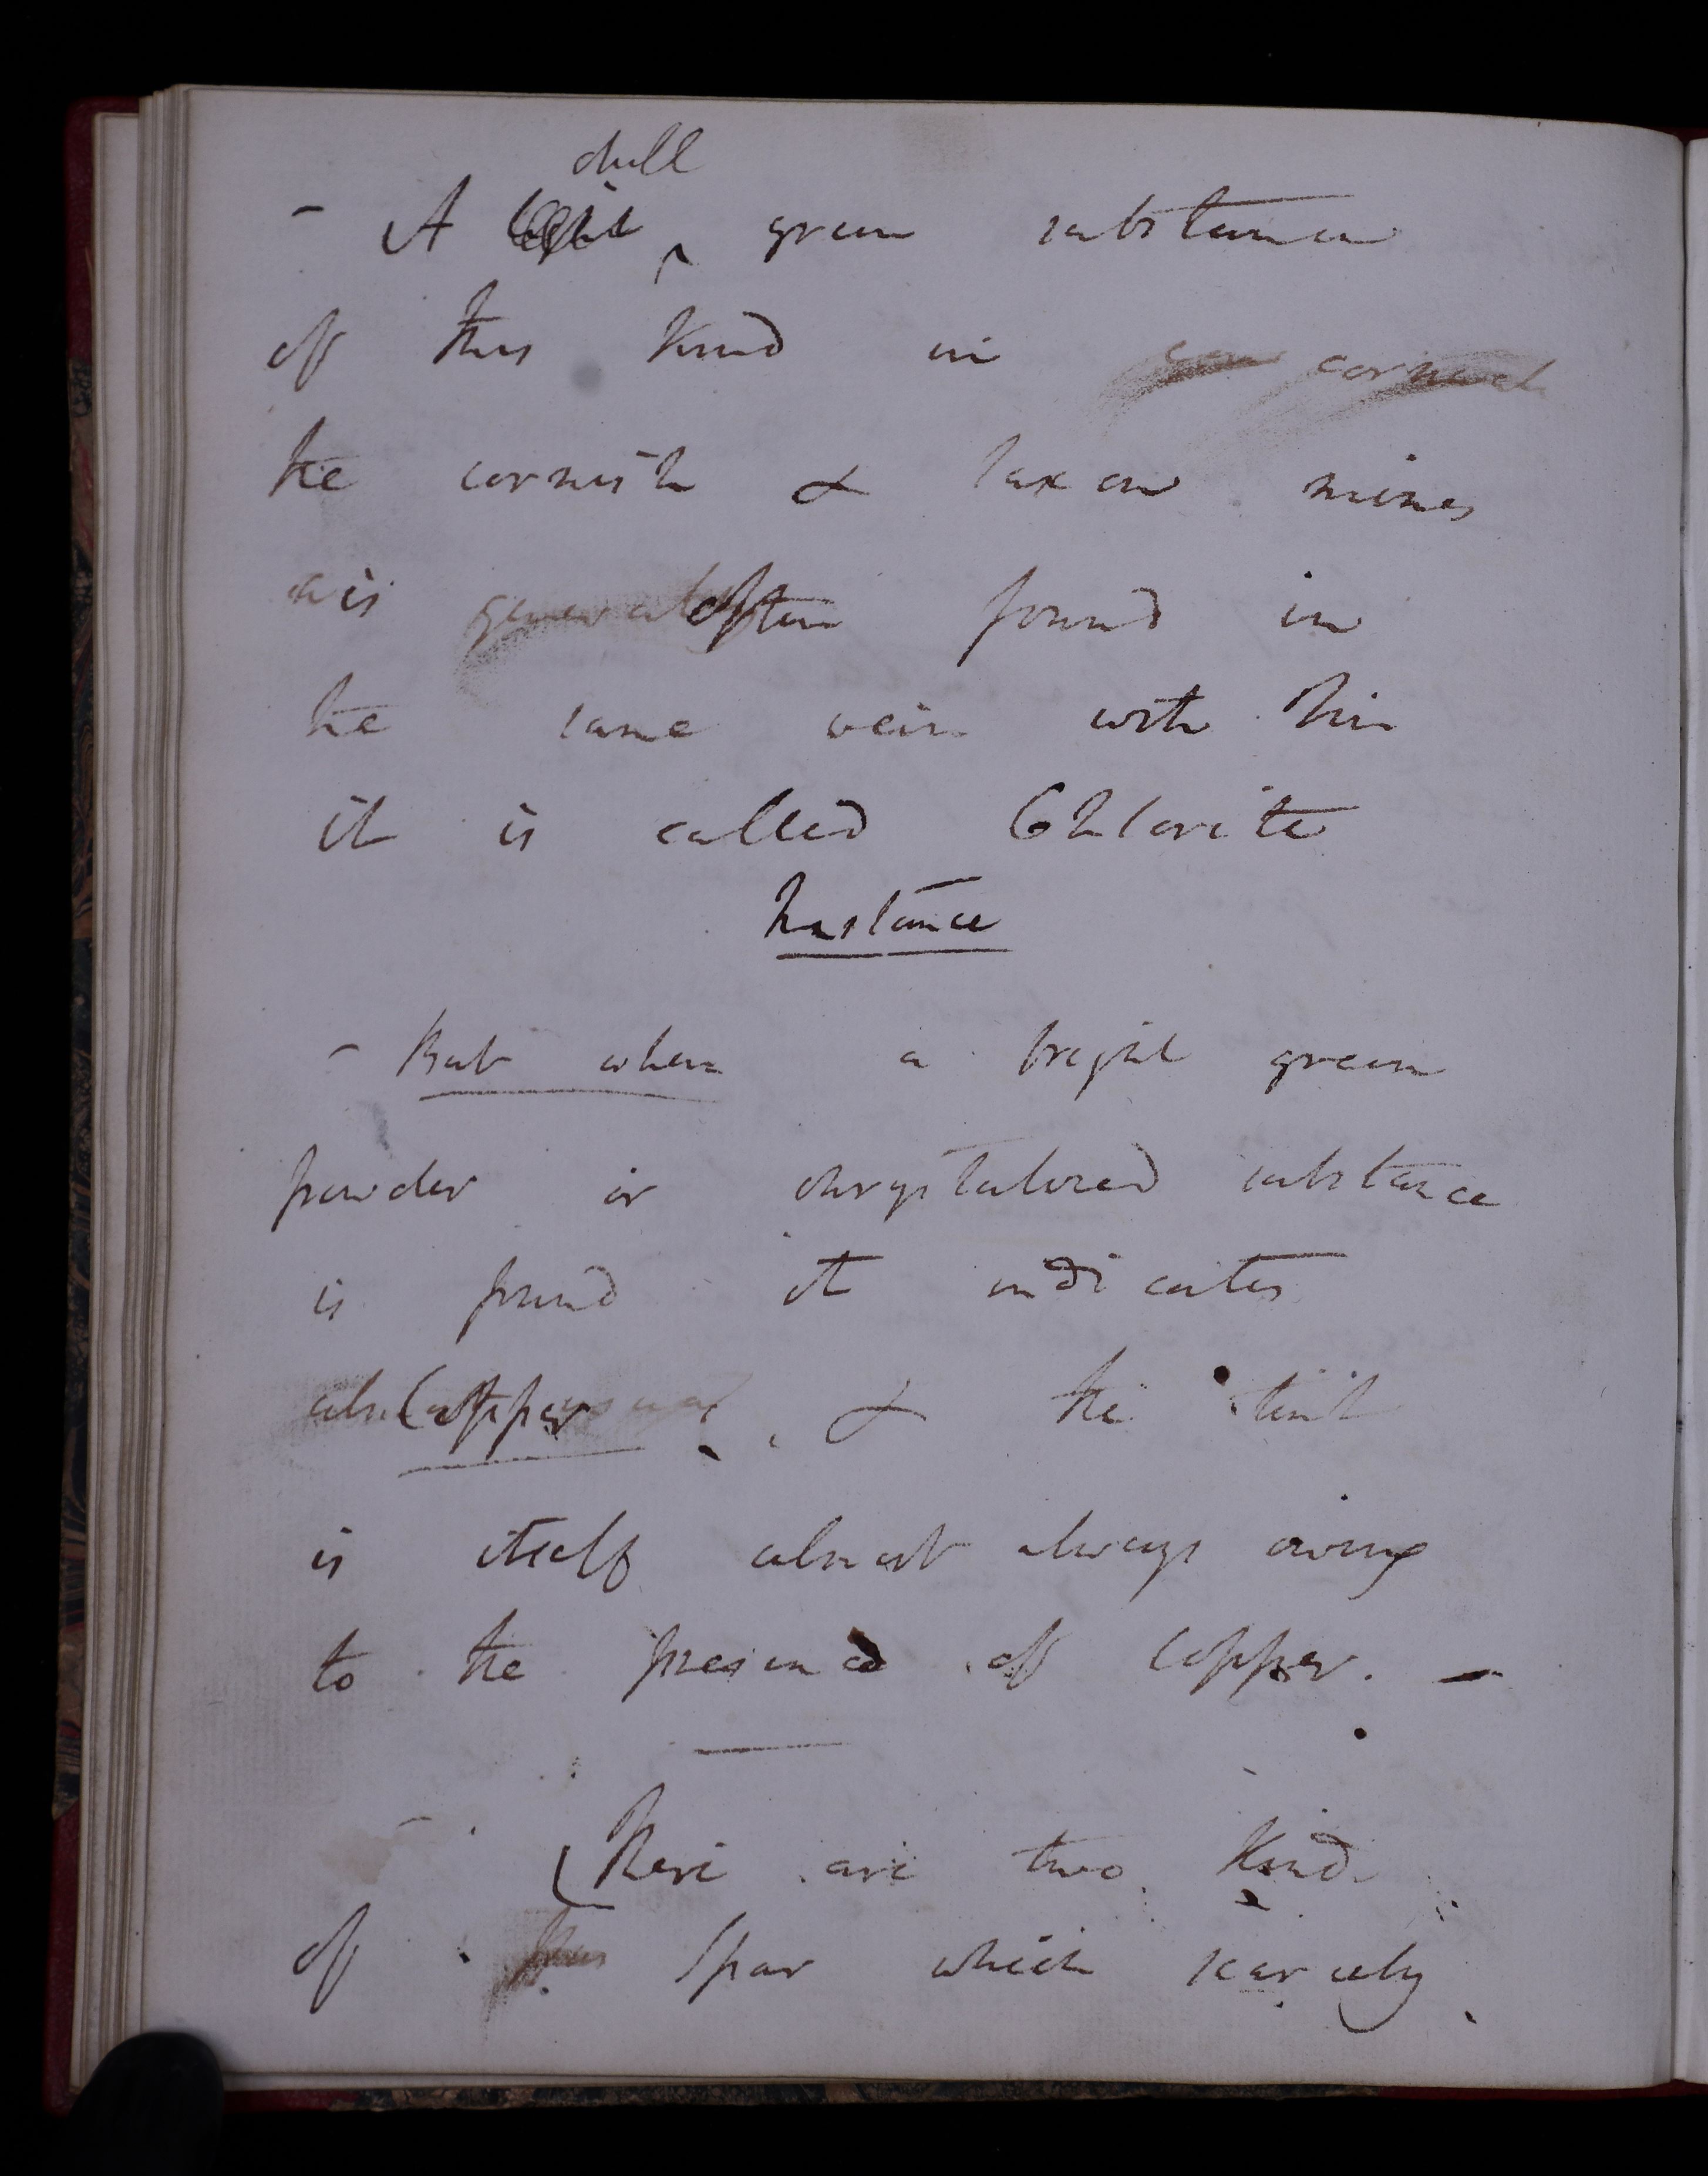 dull
- A light green substance
of this kind in
the cornish & saxon mines
is often found in
the same vein with Tin
it is called Chlorite
Instance
- But when a bright green
powder or chrystalized substance
is found it indicates
Copper & the tint
is itself almost always owing
to the presence of Copper. -
- There are two Kinds
of this Spar which scarcely